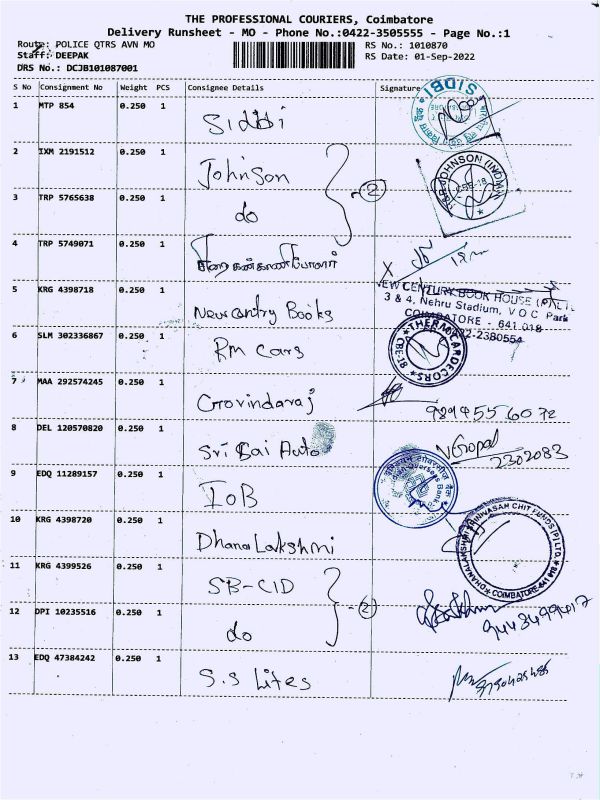 THE PROFESSIONAL COURIERS, Coimbatore
Delivery Runsheet - MO - Phone No.:0422-3505555 - Page No.:1
Route: POLICE QTRS AVN MO RS No.: 1010870
Staff: DEEPAK RS Date: 01-Sep-2022
DRS No.: DCJB101087001
S No Consignment No Weight PCS Consignee Details Signature
1 MTP 854 0.250 1 Siddhi
IDBI
2 IXM 2191512 0.250 1 Johnson
2
3 TRP 5765638 0.250 1 do
4 TRP 5749071 0.250 1
X
5 KRG 4398718 0.250 1 New Centry Books
NEW CENTURY BOOK HOUSE (P) LTD.
3 & 4, Nehru Stadium, V O C Park
COIMBATORE - 641 018
0422-2380554
6 SLM 302336867 0.250 1 RM Cars
THERM CAR DECORS
CBE-18
7 MAA 292574245 0.250 1 Govindaraj
9894556072
8 DEL 120570820 0.250 1 Sri Sai Auto
Gopal
2302083
9 EDQ 11289157 0.250 1 IOB
Indian Overseas Bank
10 KRG 4398720 0.250 1 Dhana Lakshmi
DHANALAKSHMI SRINIVASAH CHIT FUNDS (P) LTD.
COIMBATORE-641 018
11 KRG 4399526 0.250 1 SB-CID
2
12 DPI 10235516 0.250 1 do
13 EDQ 47384242 0.250 1 S.S Lites